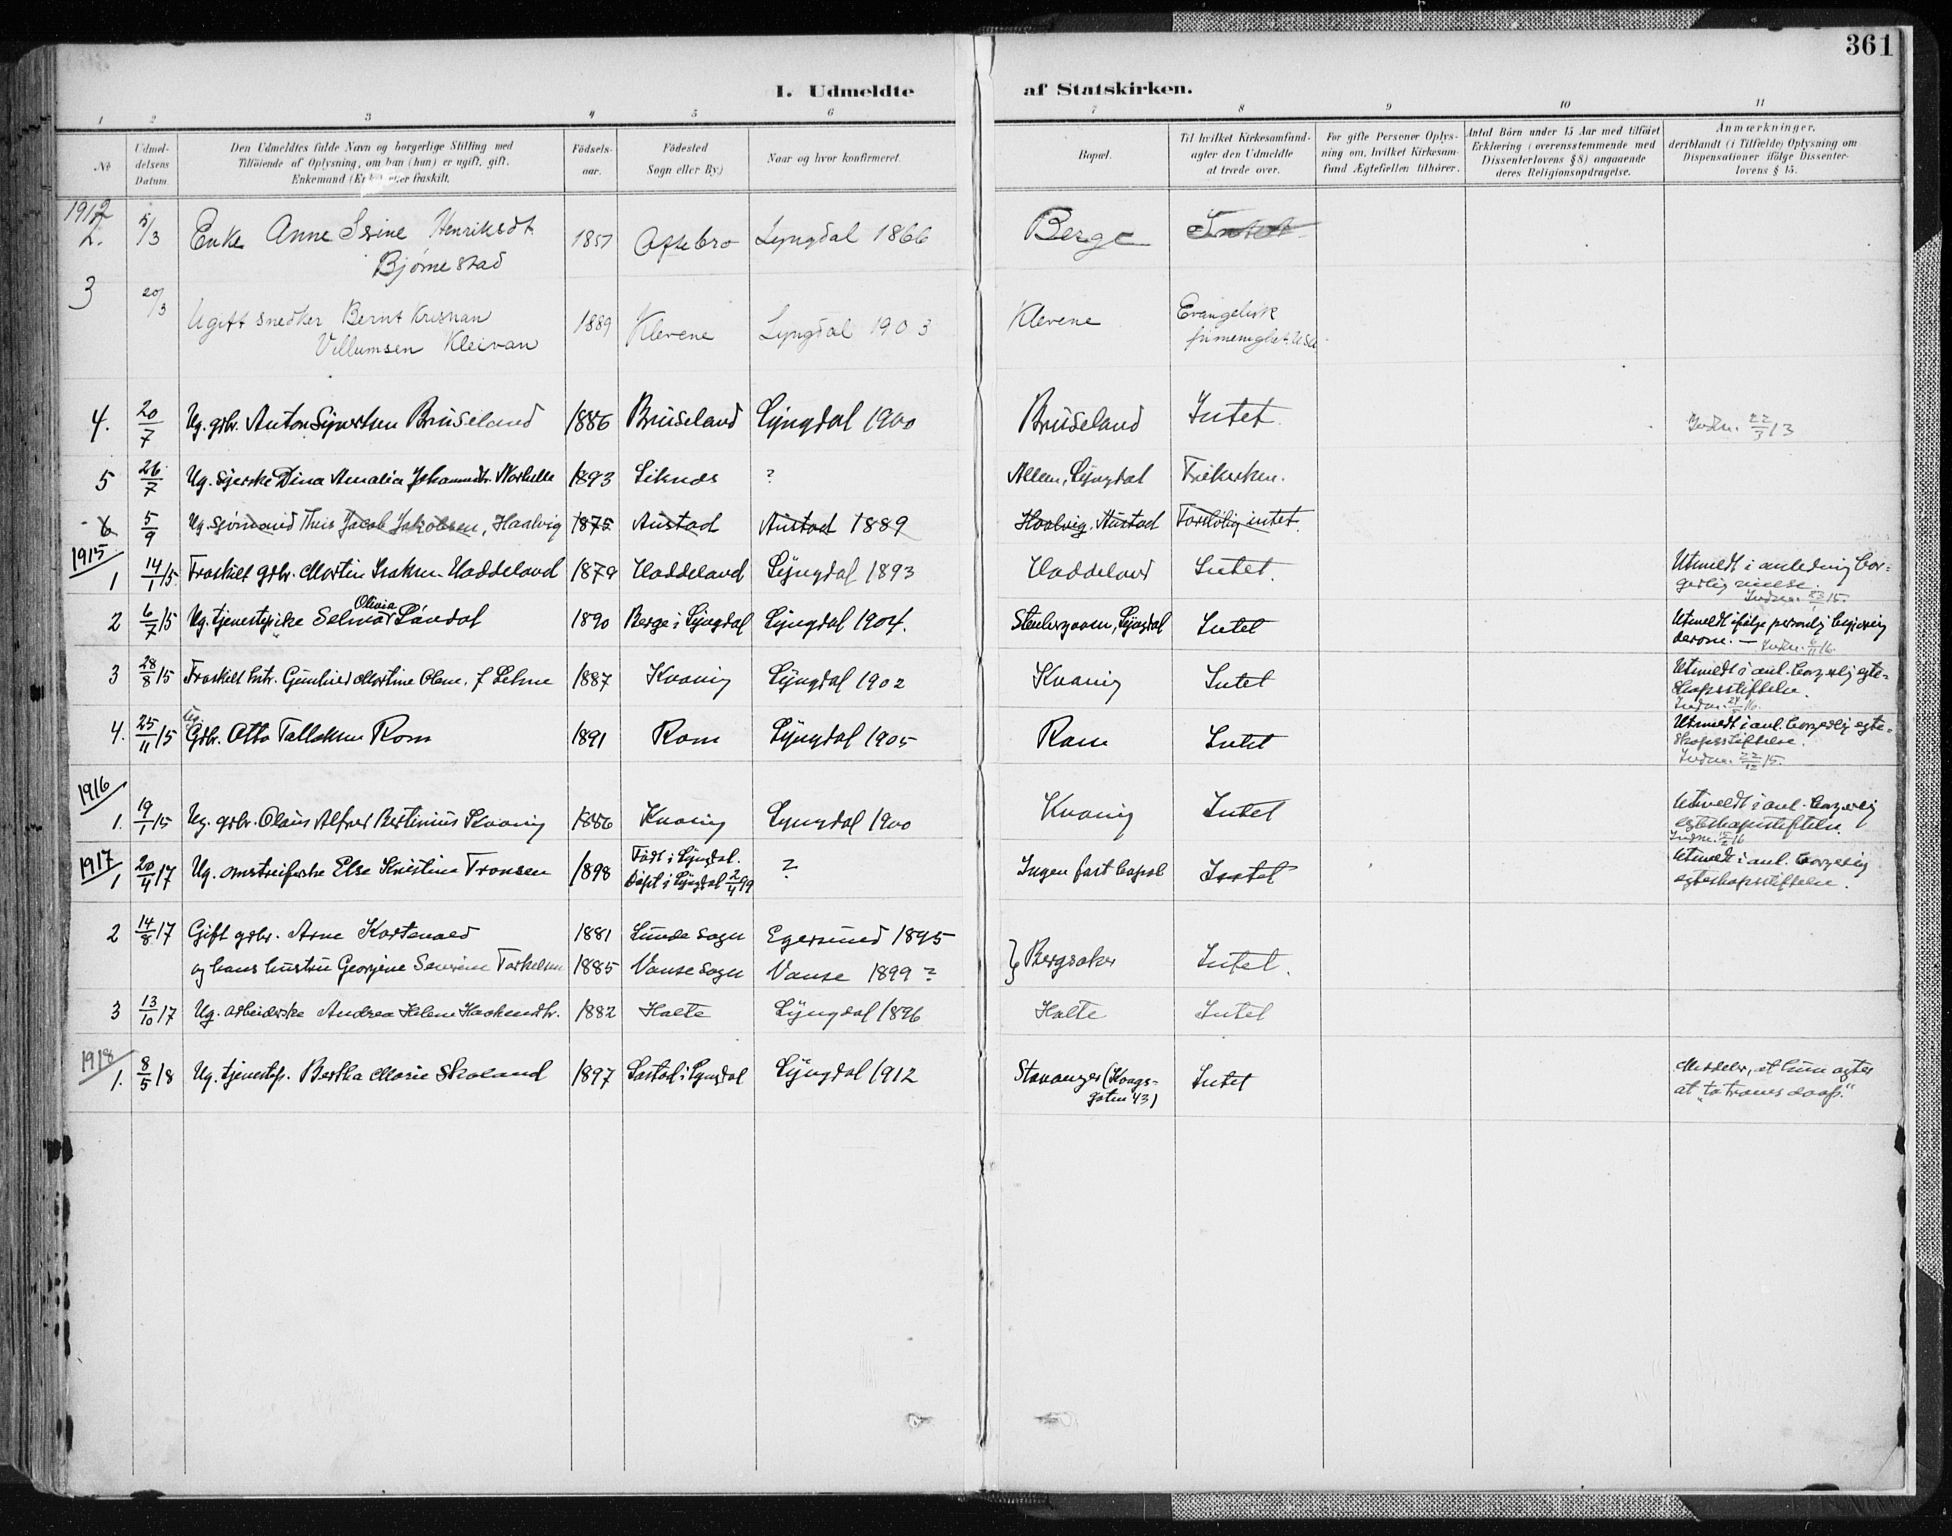 361
I. Udmeldte af Statskirken.
1 2 3 4 5 6 7 8 9 10 11
No
Udmeldelsens Datum.
Den Udmeldtes fulde Navn og borgerlige Stilling med
Tilføiende af Oplysning, om han (hun) er ugift, gift,
Enkemand (Enke) eller fraskilt.
Fødselsaar.
Fødested
Sogn eller By)
Naar og hvor konfirmeret.
Bopæl.
Til hvilket Kirkesamfund
agter den Udmeldte
at træde over.
For gifte Personer Oplys-
ning om, hvilket Kirkesam-
fund Ægtefællen tilhører.
Antal Børn under 15 Aar med tilføiet
Erklæring (overensstemmende med
Dissenterlovens § 8) angaaende
deres Religionsopdragelse.
Anmærkninger,
deriblandt (i Tilfælde) Oplysning om
Dispensationer ifølge Dissenter-
lovens § 15.
1912
2. 5/3 Enke Anne Serine Henriksdt. 1851 Oftebro Lyngdal 1866 Berge Intet
Bjørnestad
3 20/3 Ugift snedker Bernt Kristian 1889 Klevene Lyngdal 1903 Klevene Evangelisk
Villumsen Kleivan
4. 20/7 Ug. gdbr. Anton Syvertsen Bruseland 1886 Bruseland Lyngdal 1900 Bruseland Intet. Indm. 22/3 13
5 26/7 Ug. syerske Dina Amalia Johannesdtr. 1893 Liknes ? Alleen, Lyngdal Frikirken.
6 5/9 Ug. sjømand Theis Jacob Jakobsen, Haalvig 1875 Austad Austad 1889 Haalvig, Austad Foreløbig intet.
1915
1 14/1 15 Fraskilt gdbr. Martin Isaksen Haddeland 1879 Haddeland Lyngdal 1893 Haddeland Intet. Utmeldt i anledning bor-
gerlig vielse.
Indm. 23/1 15.
2 6/7 15 Ug. tjenestepike Selma Olivia Løvdal 1890 Berge i Lyngdal Lyngdal 1904. Lyngdal Intet Utmeldt ifølge personlig begjæring
derom. — Indm. 6/11 16.
3 28/8 15 Fraskilt hstr. Gunhild Martine Olene, f. Lehne 1887 Kvavig Lyngdal 1902 Kvavig Intet Utmeldt i anl. borgerlig egte-
skapsstiftelse.
4. 25/11 15 Ug. Gdbr. Otto Tallaksen Rom 1891 Rom Lyngdal 1905 Rom Intet Utmeldt i anl. borgerlig egte-
skapsstiftelse.
Indm. 22/12 15.
1916
1. 19/1 15 Ug. gdbr. Olaus Alfred Bertinius Kvavig 1886 Kvavig Lyngdal 1900 Kvavig Intet Utmeldt i anl. borgerlig
egteskapsstiftelse.
1917
1 20/4 17 Ug. omstreiferske Else Kristine Fransen 1898 Født i Lyngdal. ? Ingen fast bopæl Intet Utmeldt i anl. borgerlig
Døpt i Lyngdal 2/4 99 egteskapsstiftelse.
2 14/8 17 Gift gdbr. Arne Kartevold 1881 Lunde sogn Egersund 1895 } Bergsaker Intet.
og hans hustru Georgine Severine Torkelsen 1885 Vanse sogn Vanse 1899 ?
3 13/10 17 Ug. arbeiderske Andrea Helene Haakensdtr. 1882 Halte Lyngdal 1896 Halte Intet
1918
1. 8/5 18 Ug. tjenestep. Bertha Marie Skoland 1897 i Lyngdal Lyngdal 1912 Stavanger (Kongs- Intet Meddeler, at hun agter
gaten 43) at „ta troens daap".